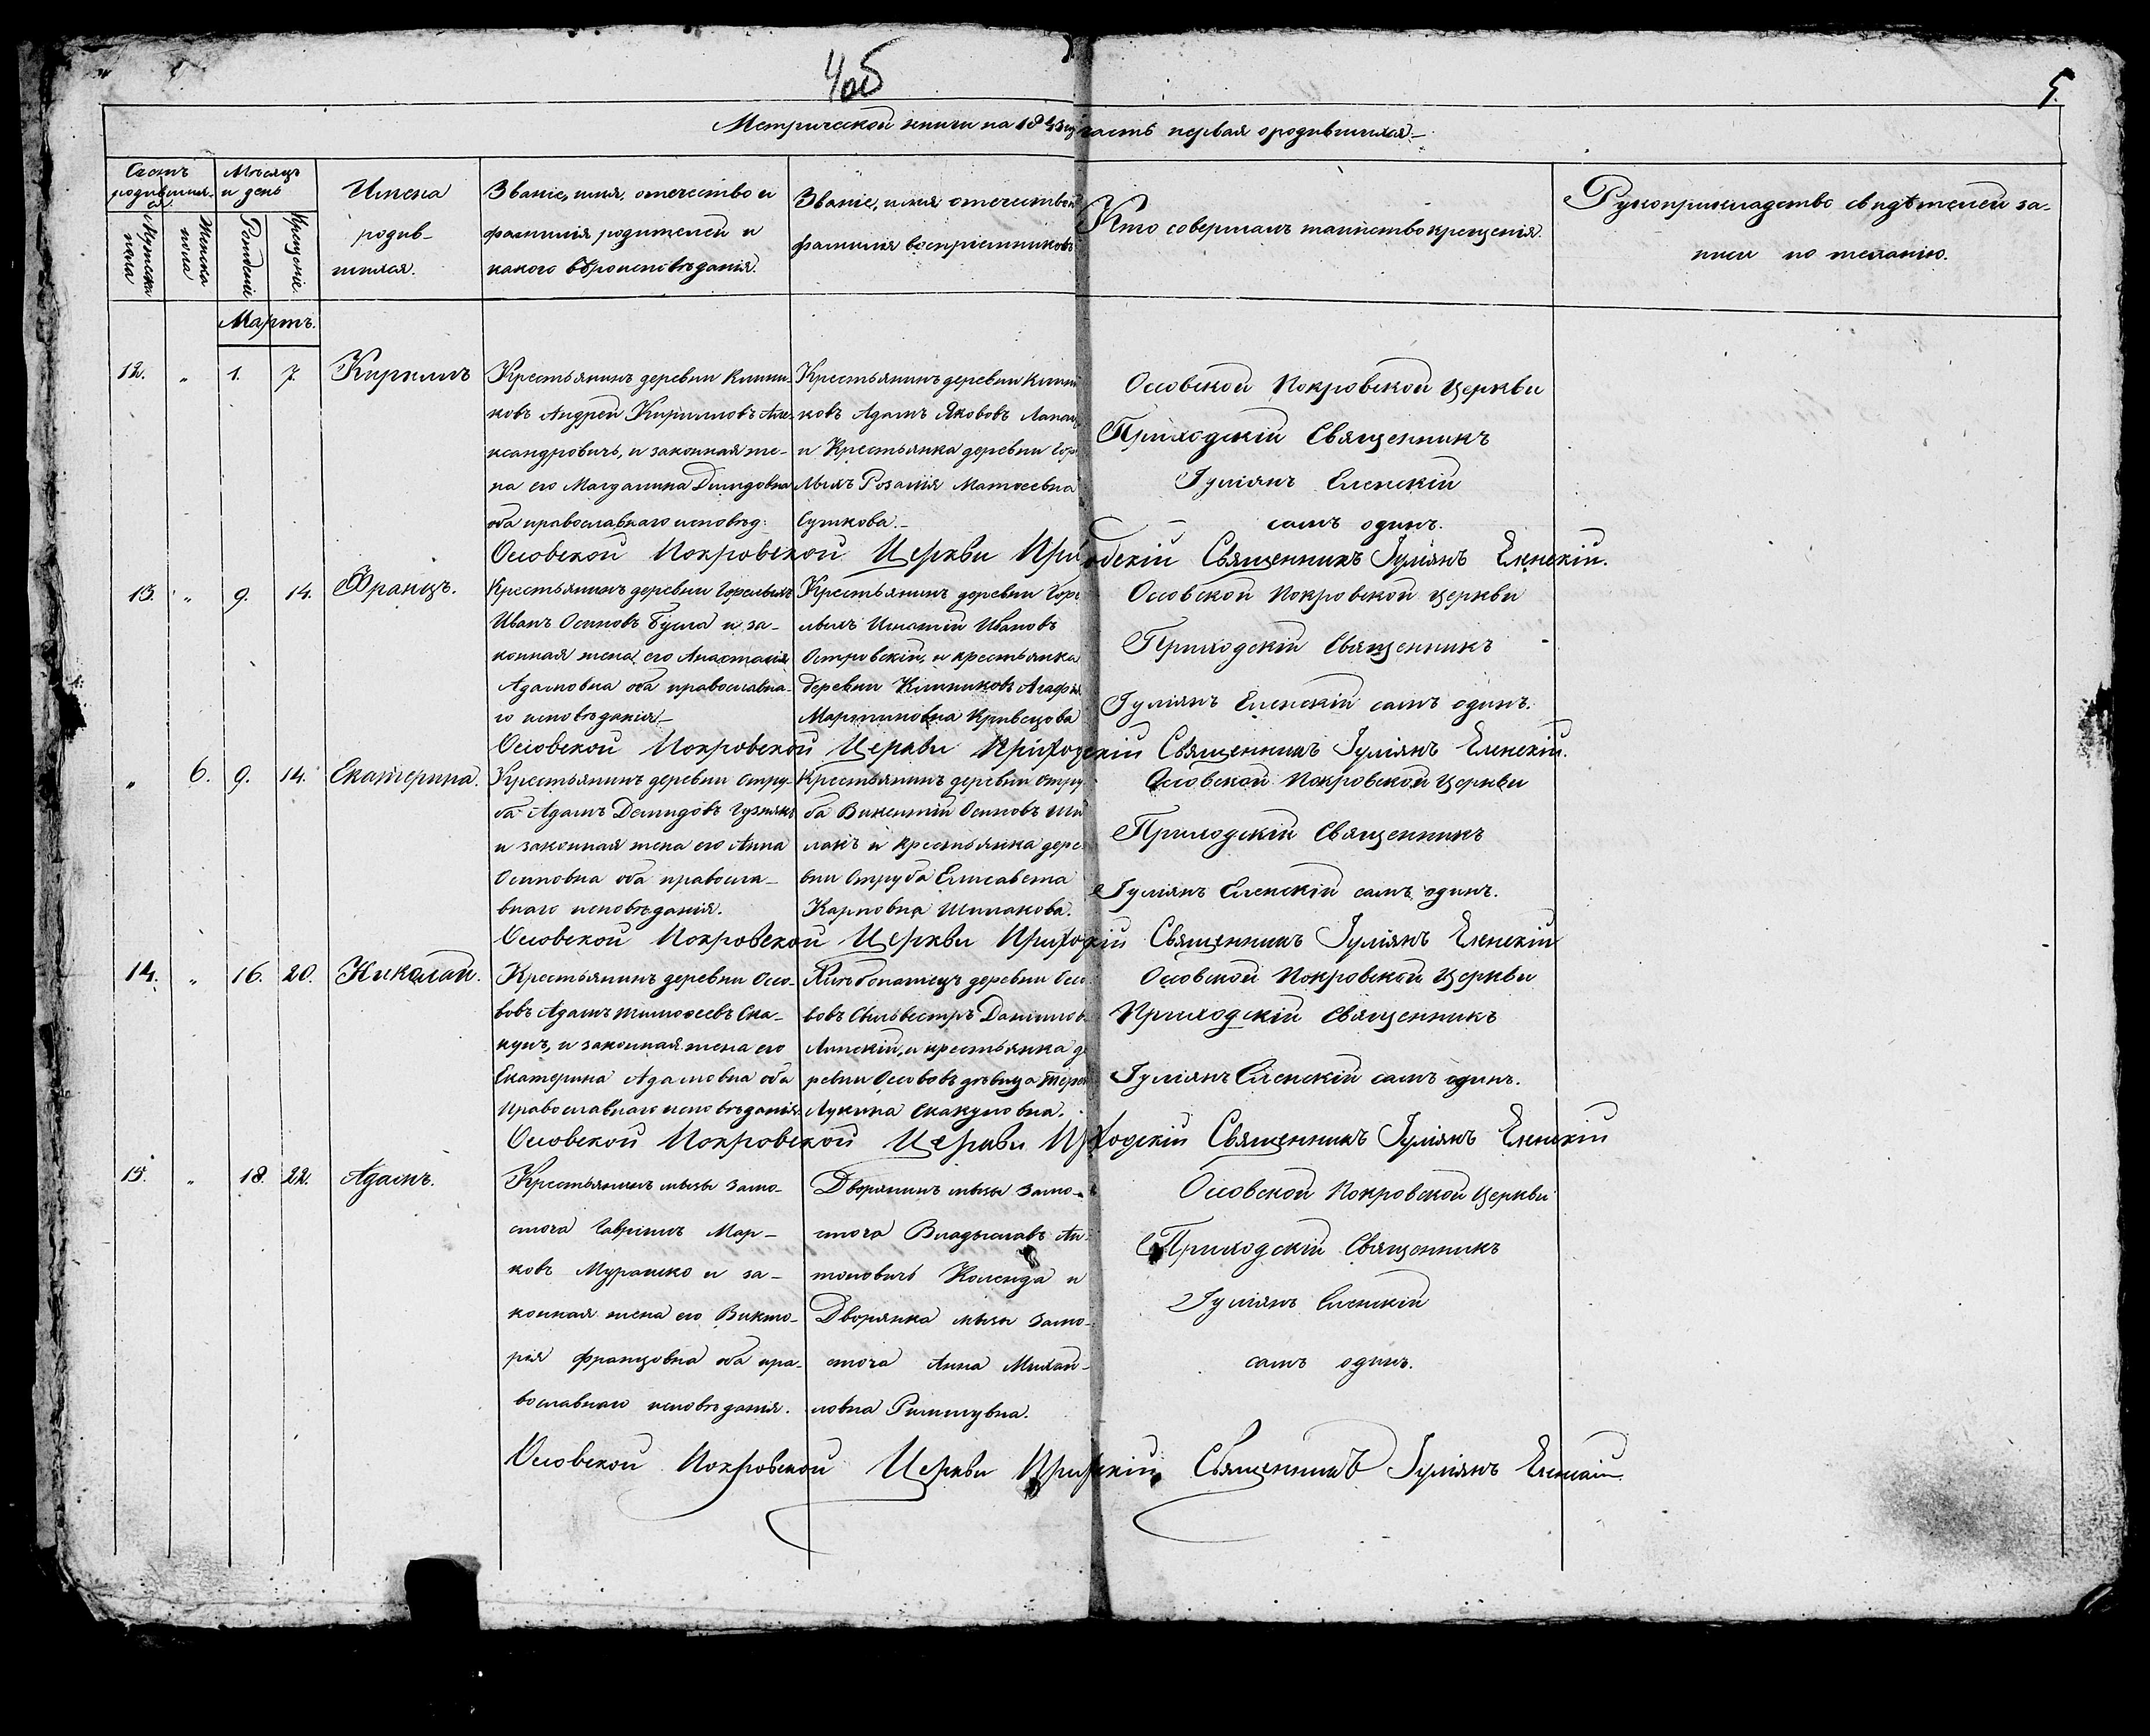 4об
5.
Метрической книги на 18 часть первая о родившихся.
Счетъ родившихся.
Мужеска пола
Женска пола
Мѣсяцъ и день
Рожденія
Крещенія.
Имена
родив-
шихся.
Званіе, имя, отечество и
фамилія родителей и
какого вѣроисповѣданія.
Званіе, имя отечество и
фамилія воспріемниковъ
Кто совершалъ таинство крещенія.
Рукоприкладство свидѣтелей за-
писи по желанію.
Мартъ.
12.
"
1.
7.
Кириллъ
Крестьянинъ деревни Клини-
ковъ Андрей Кирилловъ Але-
ксандровичъ, и законная же-
на его Магдалина Демидовна
оба православнаго исповѣд:
Крестьянинъ деревни Клини
ковъ Адамъ Якововъ
и Крестьянка деревни Горе
лыхъ Розалія Матѳеевна
Сучкова.
Оссовской Покровской Церкви
Приходскій Священникъ
Іуліянъ Еленскій
самъ одинъ.
Оссовской Покровской Церкви Приходскій Священникъ Іуліянъ Еленскій.
13.
"
9.
14.
Францъ.
Крестьянинъ деревни Горелыхъ
Иванъ Осиповъ Бушла и за-
конная жена его Анастасія
Адамовна оба православна-
го исповѣданія
Крестьянинъ деревни Горе
лыхъ Игнатій Ивановъ
Островскій, и крестьянка
деревни Клиниковъ Агафія
Мартиновна Кривецова
Оссовской Покровской Церкви
Приходскій Священникъ
Іуліянъ Еленскій самъ одинъ.
Оссовской Покровской Церкви Приходскій Священникъ Іуліянъ Еленскій.
"
6.
9.
14.
Екатерина.
Крестьянинъ деревни Отру-
ба Адамъ Демидовъ Гузнякъ
и законная жена его Анна
Осиповна оба правосла-
внаго исповѣданія.
Крестьянинъ деревни Отру
ба Викентій Осиповъ Ши
лакъ и крестьянка дере
вни Отруба Елисавета
Карповна Шилакова.
Оссовской Покровской Церкви
Приходскій Священникъ
Іуліянъ Еленскій самъ одинъ.
Оссовской Покровской Церкви Приходскій Священникъ Іуліянъ Еленскій
14.
"
16.
20.
Николай.
Крестьянинъ деревни Оссо-
вовъ Адамъ Тимоѳеевъ Ска-
кунъ, и законная жена его
Екатерина Адамовна оба
православнаго исповѣданія
Хлѣбопашецъ деревни Оссо
вовъ Сильвестръ Даниловъ
Липскій, и крестьянка де
ревни Оссововъ дѣвица
Лукина Скакуновна.
Оссовской Покровской Церкви
Приходскій Священникъ
Іуліянъ Еленскій самъ одинъ.
Оссовской Покровской Церкви Приходскій Священникъ Іуліянъ Еленскій
15.
"
18.
22.
Адамъ.
Крестьянинъ мызы Замо-
сточа Гаврiилъ Мар-
ковъ Мурашко и за-
конная жена его Викто-
рія Францовна оба пра-
вославнаго исповѣданія.
Дворянинъ мызы Замо-
сточа Владыславъ Ан-
тоновичъ Коленда и
Дворянка мызы Замо-
сточа Анна Михай-
ловна
Оссовской Покровской Церкви
Приходскій Священникъ
Іуліянъ Еленскій
самъ одинъ.
Оссовской Покровской Церкви Приходскій Священникъ Іуліянъ Еленскій